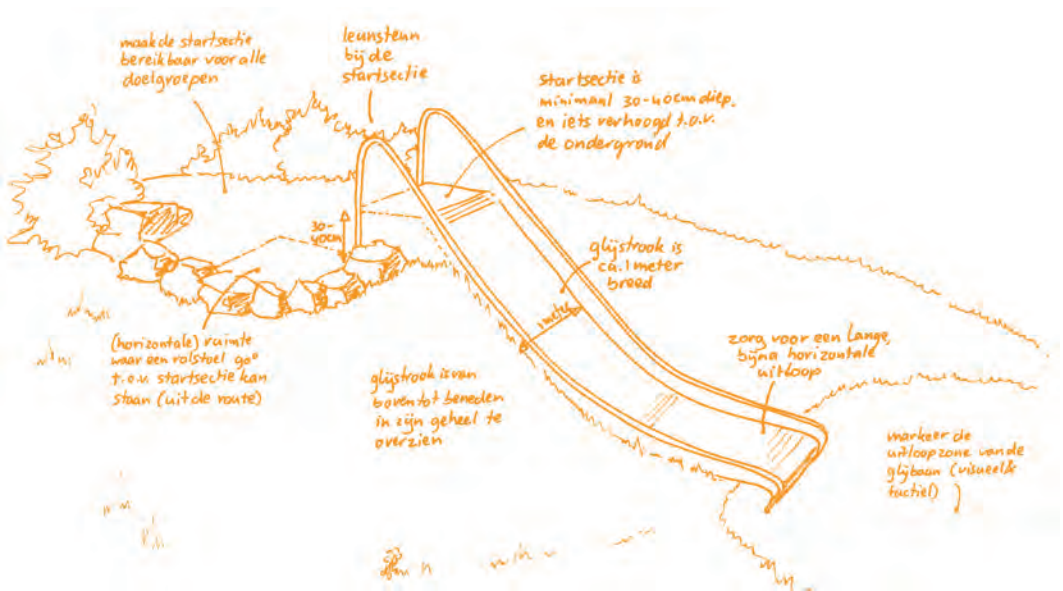 maak de startsectie
bereikbaar voor alle
doelgroepen
leunsteun
bij de
startsectie
startsectie is
minimaal 30-40cm diep,
en iets verhoogd t.o.v.
de ondergrond
30-
40cm
glijstrook is
ca. 1 meter
breed
1 meter
(horizontale) ruimte
waar een rolstoel 90°
t.o.v. startsectie kan
staan (uit de route)
glijstrook is van
boven tot beneden
in zijn geheel te
overzien
zorg voor een lange,
bijna horizontale
uitloop
markeer de
uitloopzone van de
glijbaan (visueel &
tactiel)